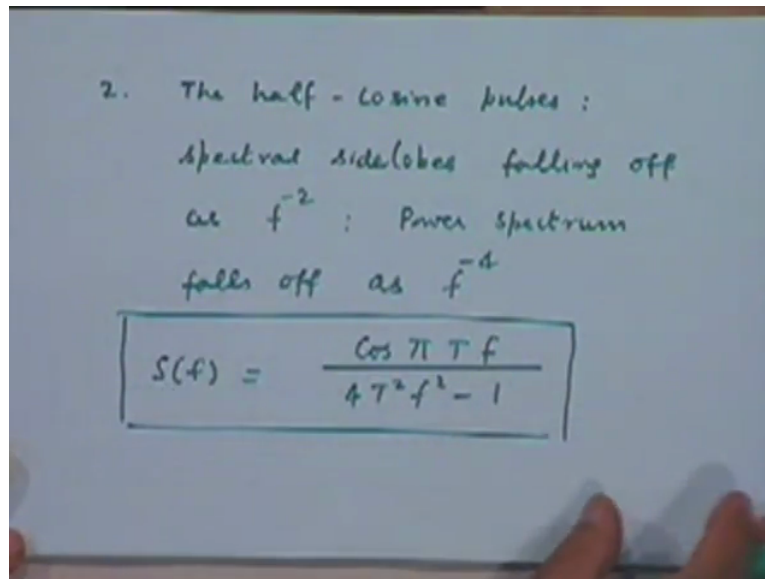 2. The half-cosine pulses :
spectral sidelobes falling off
as f^-2 : Power spectrum
falls off as f^-4
S(f) = Cos π T f / 4 T² f² - 1